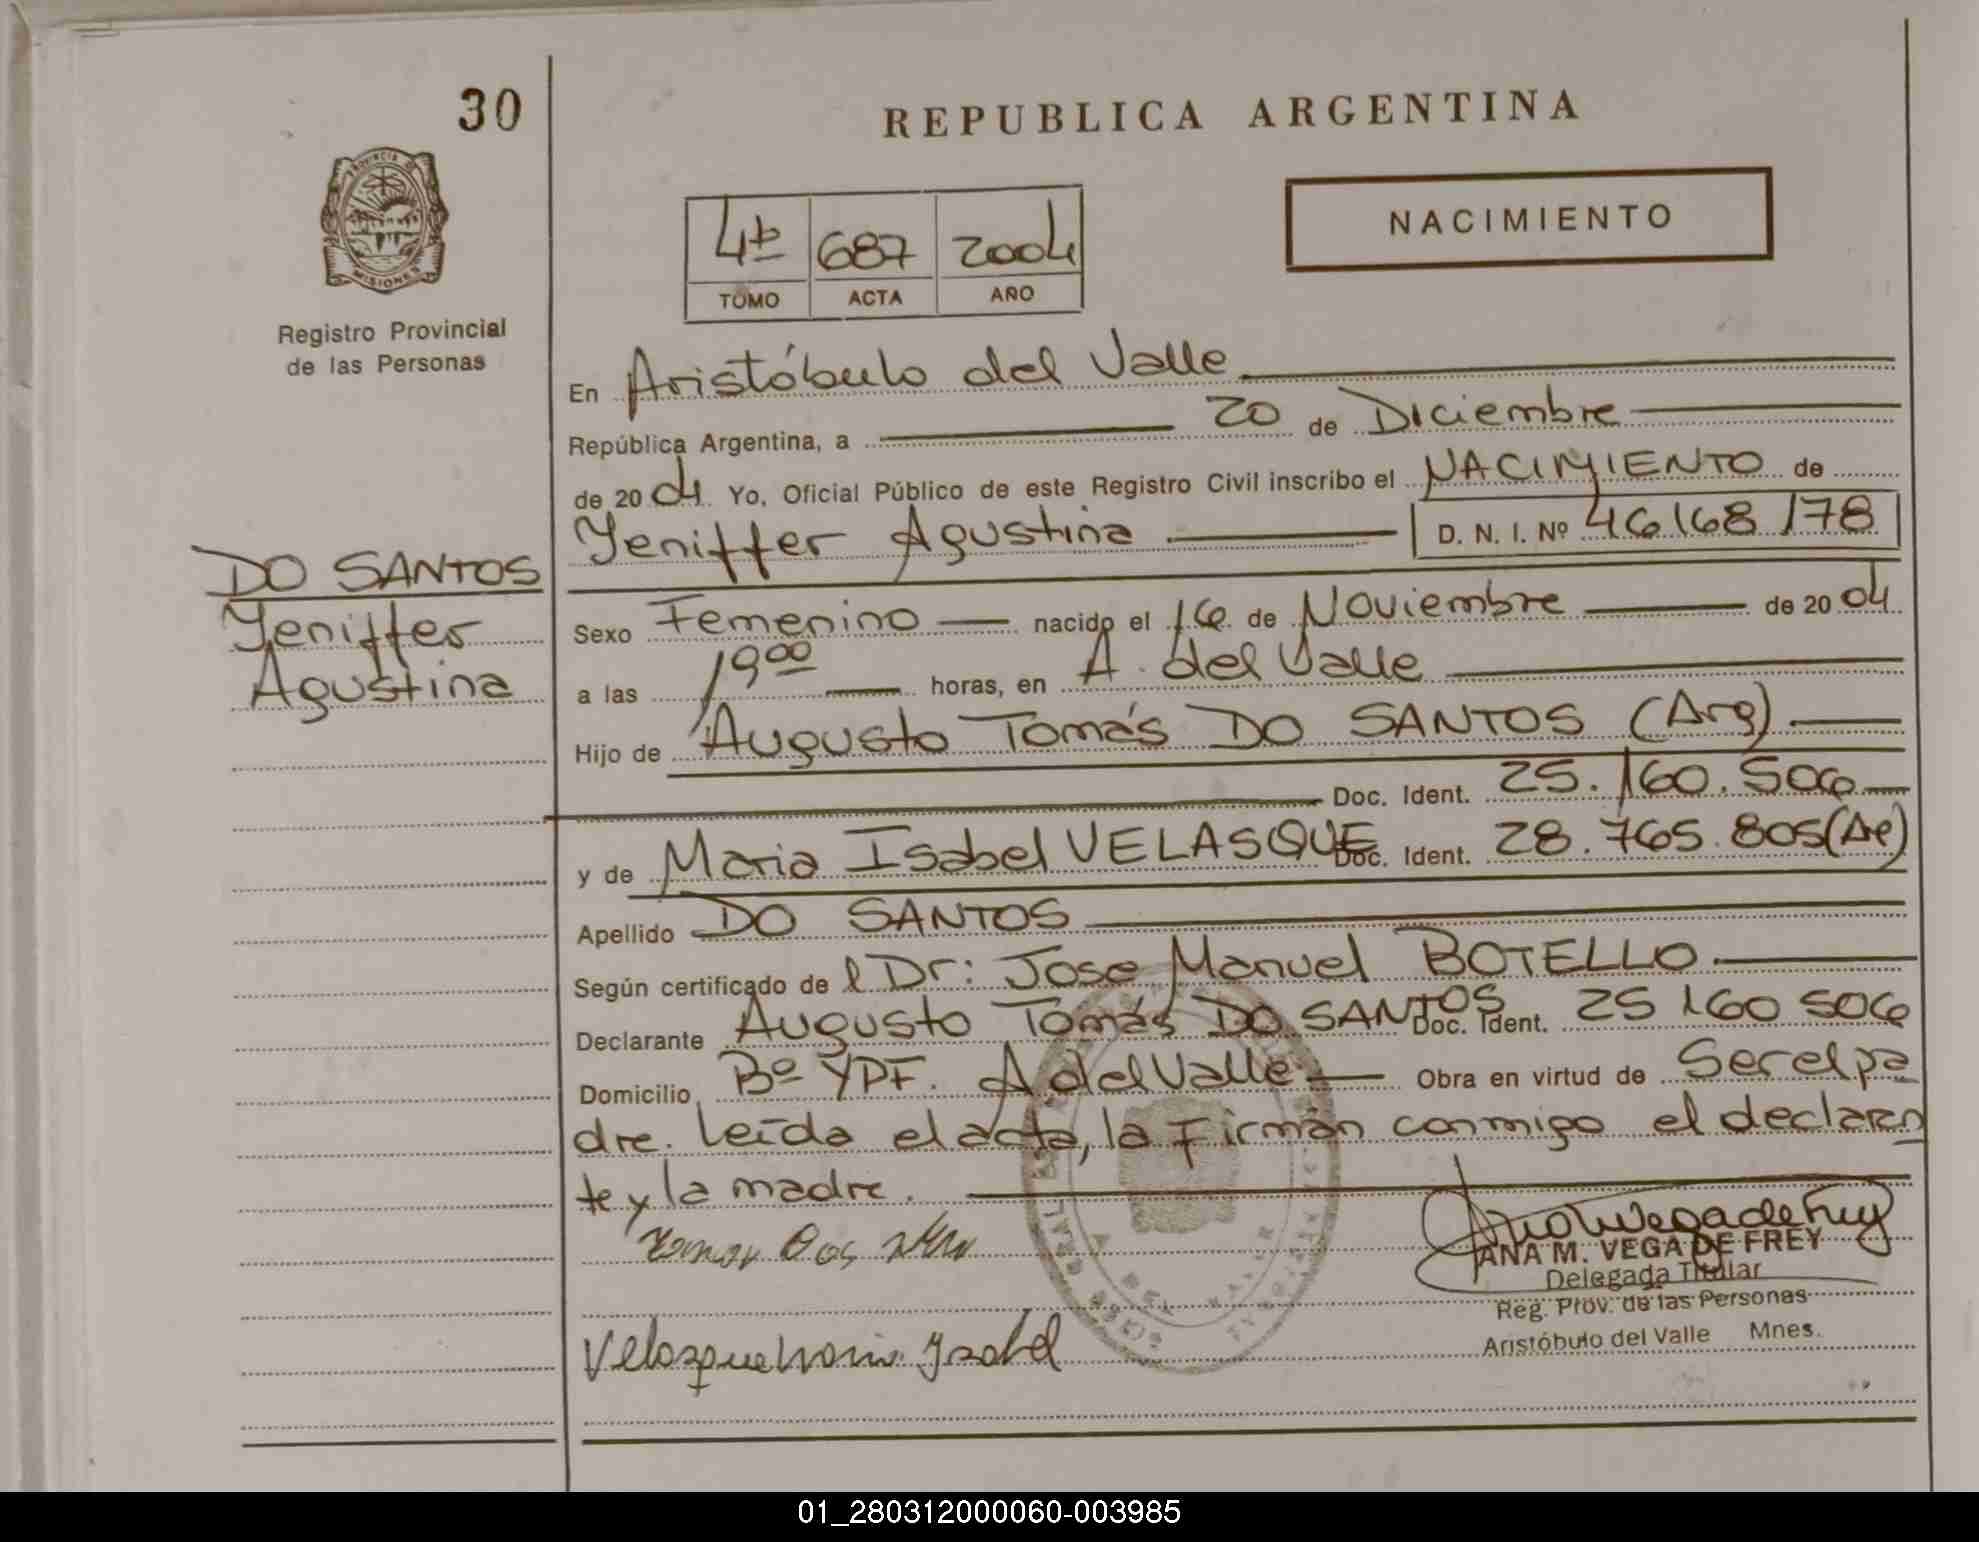 30
REPUBLICA ARGENTINA
PROVINCIA DE
MISIONES
Registro Provincial
de las Personas
4to 687 2004
TOMO ACTA AÑO
NACIMIENTO
En Aristóbulo del Valle
República Argentina, a 20 de Diciembre
de 2004 Yo, Oficial Público de este Registro Civil inscribo el NACIMIENTO de
Yeniffer Agustina D. N. I. Nº 46168178
DO SANTOS
Yeniffer
Agustina
Sexo Femenino nacido el 16 de Noviembre de 2004
a las 19 00 horas, en A. del Valle
Hijo de Augusto Tomás DO SANTOS (Arg)
Doc. Ident. 25.160.506
y de Maria Isabel VELASQUE Doc. Ident. 28.765.805 (Ar)
Apellido DO SANTOS
Según certificado de l Dr: Jose Manuel BOTELLO
Declarante Augusto Tomás DO SANTOS Doc. Ident. 25 160 506
Domicilio Bº YPF. A del Valle Obra en virtud de Ser el pa
dre. Leída el acta, la firman conmigo el declaran
te y la madre.
ANA M. VEGA DE FREY
Delegada Titular
Reg. Prov. de las Personas
Aristóbulo del Valle Mnes.
01_280312000060-003985